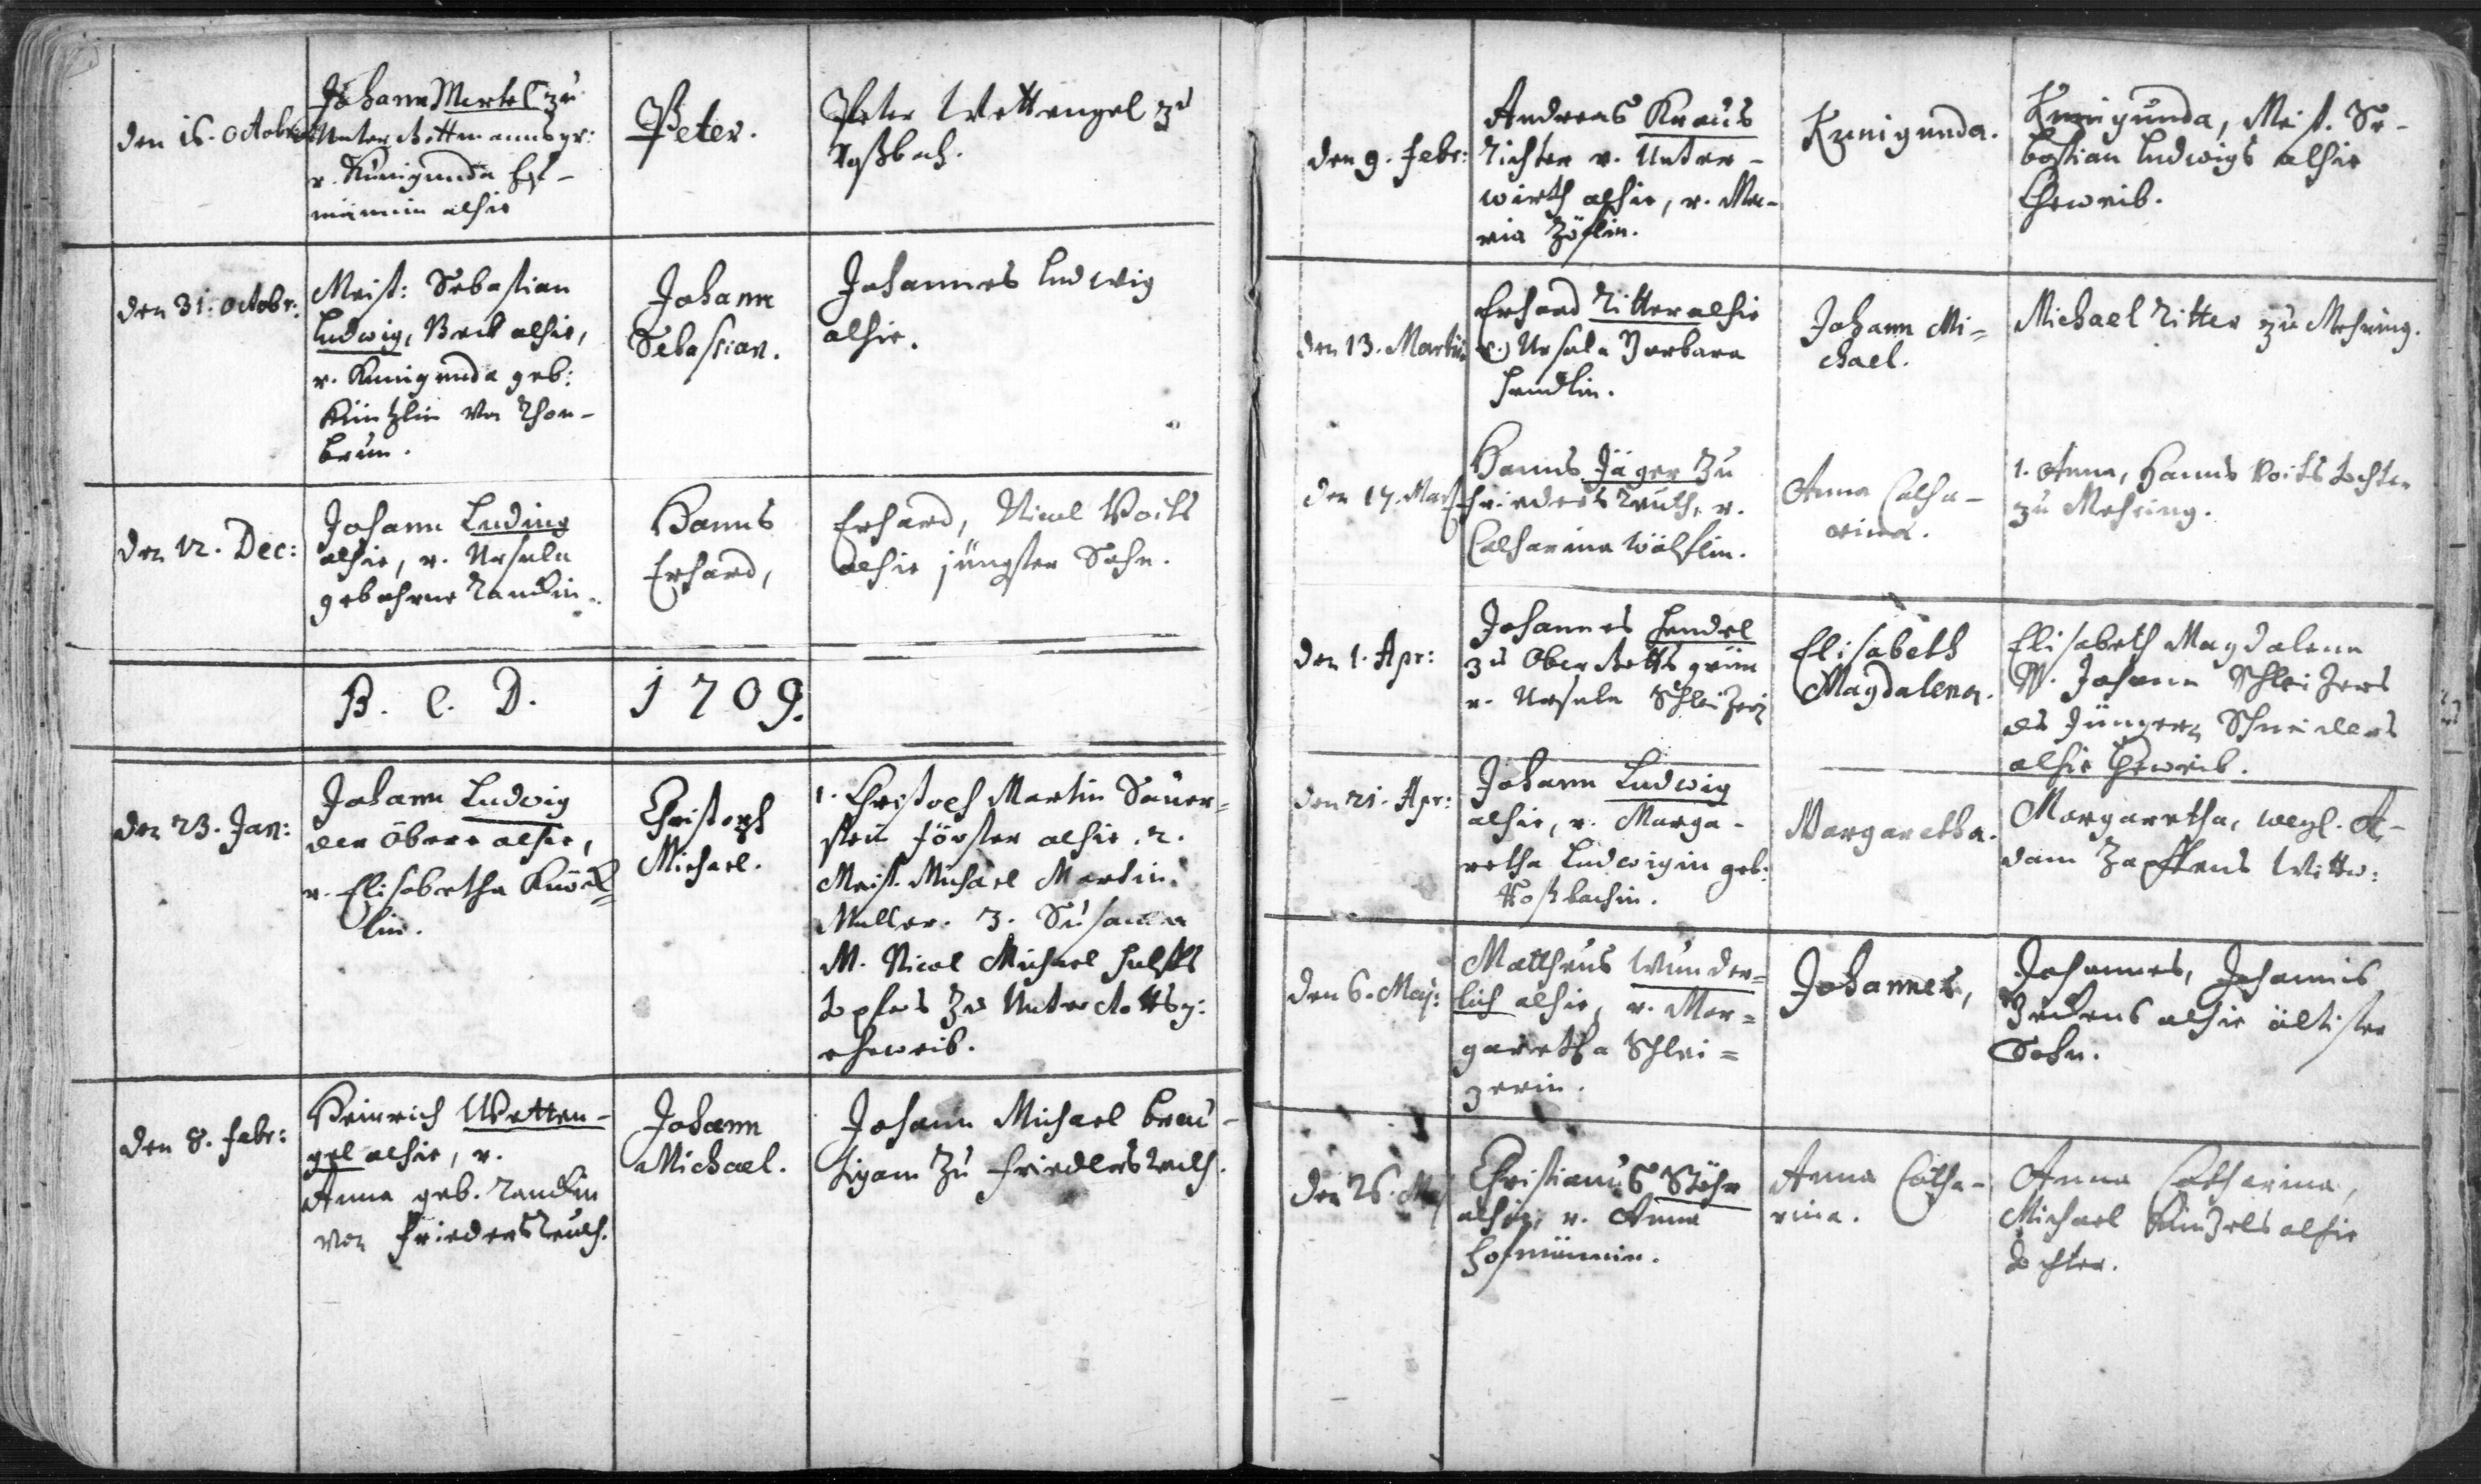 den 16. Octobr:
Johann Mertel zu
Unter Rottmannsgr:
v. Kunigunda
alhie
Peter.
Peter Wettengel zu
Roßbach.
den 31. Octobr:
Meist: Sebastian
Ludwig, Beck alhie,
v. Kunigunda geb:
Küntzlin von Thon-
brun.
Johann
Sebastian.
Johannes Ludwig
alhie.
den 12. Dec:
Johann Ludwig
alhie, v. Ursula
gebohrne
Hanns
Erhard,
Erhard, Nicol Voits
alhie jüngster Sohn.
B. C. D. 1709.
den 23. Jan:
Johann Ludwig
der Obere alhie,
v. Elisabetha Knöck-
lin.
Christoph
Michael.
1. Christoph Martin Sauer-
stein Förster alhie. 2.
Meist. Michael Martin
Müller. 3. Susanna
M. Nicol Michael
Töpfers zu Unter Rottsg:
eheweib.
den 8. Febr:
Heinrich Wetten-
gel alhie, v.
Anna geb.
von Friedersreuth.
Johann
Michael.
Johann Michael Bräu-
tigam zu Friedersreuth.
den 9. Febr:
Andreas Kraus
Richter v. Unter-
wirth alhie, v. Ma-
ria
Kunigunda.
Kunigunda, Meist. Se-
bastian Ludwigs alhie
Eheweib.
den 13. Martii
Erhard Ritter alhie
v. Ursula Barbara
Hendlin.
Johann Mi-
chael.
Michael Ritter zu Mehring.
den 17. Mart:
Hanns Jäger zu
Friedersreuth, v.
Catharina Wölflin.
Anna Catha-
rina.
1. Anna, Hanns Voits Tochter
zu Mehring.
den 1. Apr:
Johannes Hendel
zu Ober Rottsgrün
v. Ursula Schleizerin
Elisabeth
Magdalena.
Elisabeth Magdalena
M. Johann Schleizers
des Jüngern Schneiders
alhie Eheweib.
den 21. Apr:
Johann Ludwig
alhie, v. Marga-
retha Ludwigin geb:
Roßbachin.
Margaretha.
Margaretha, weyl. A-
dam Zapffens Wittw:
den 6. Maj:
Mattheus Wunder-
lich alhie, v. Mar-
garetha Schlei-
zerin.
Johannes,
Johannes, Johannis
alhie ältister
Sohn.
den 26. Maj
Christianus Stöhr
alhie, v. Anna
Hofmännin.
Anna Catha-
rina.
Anna Catharina,
Michael Künzels alhie
Tochter.